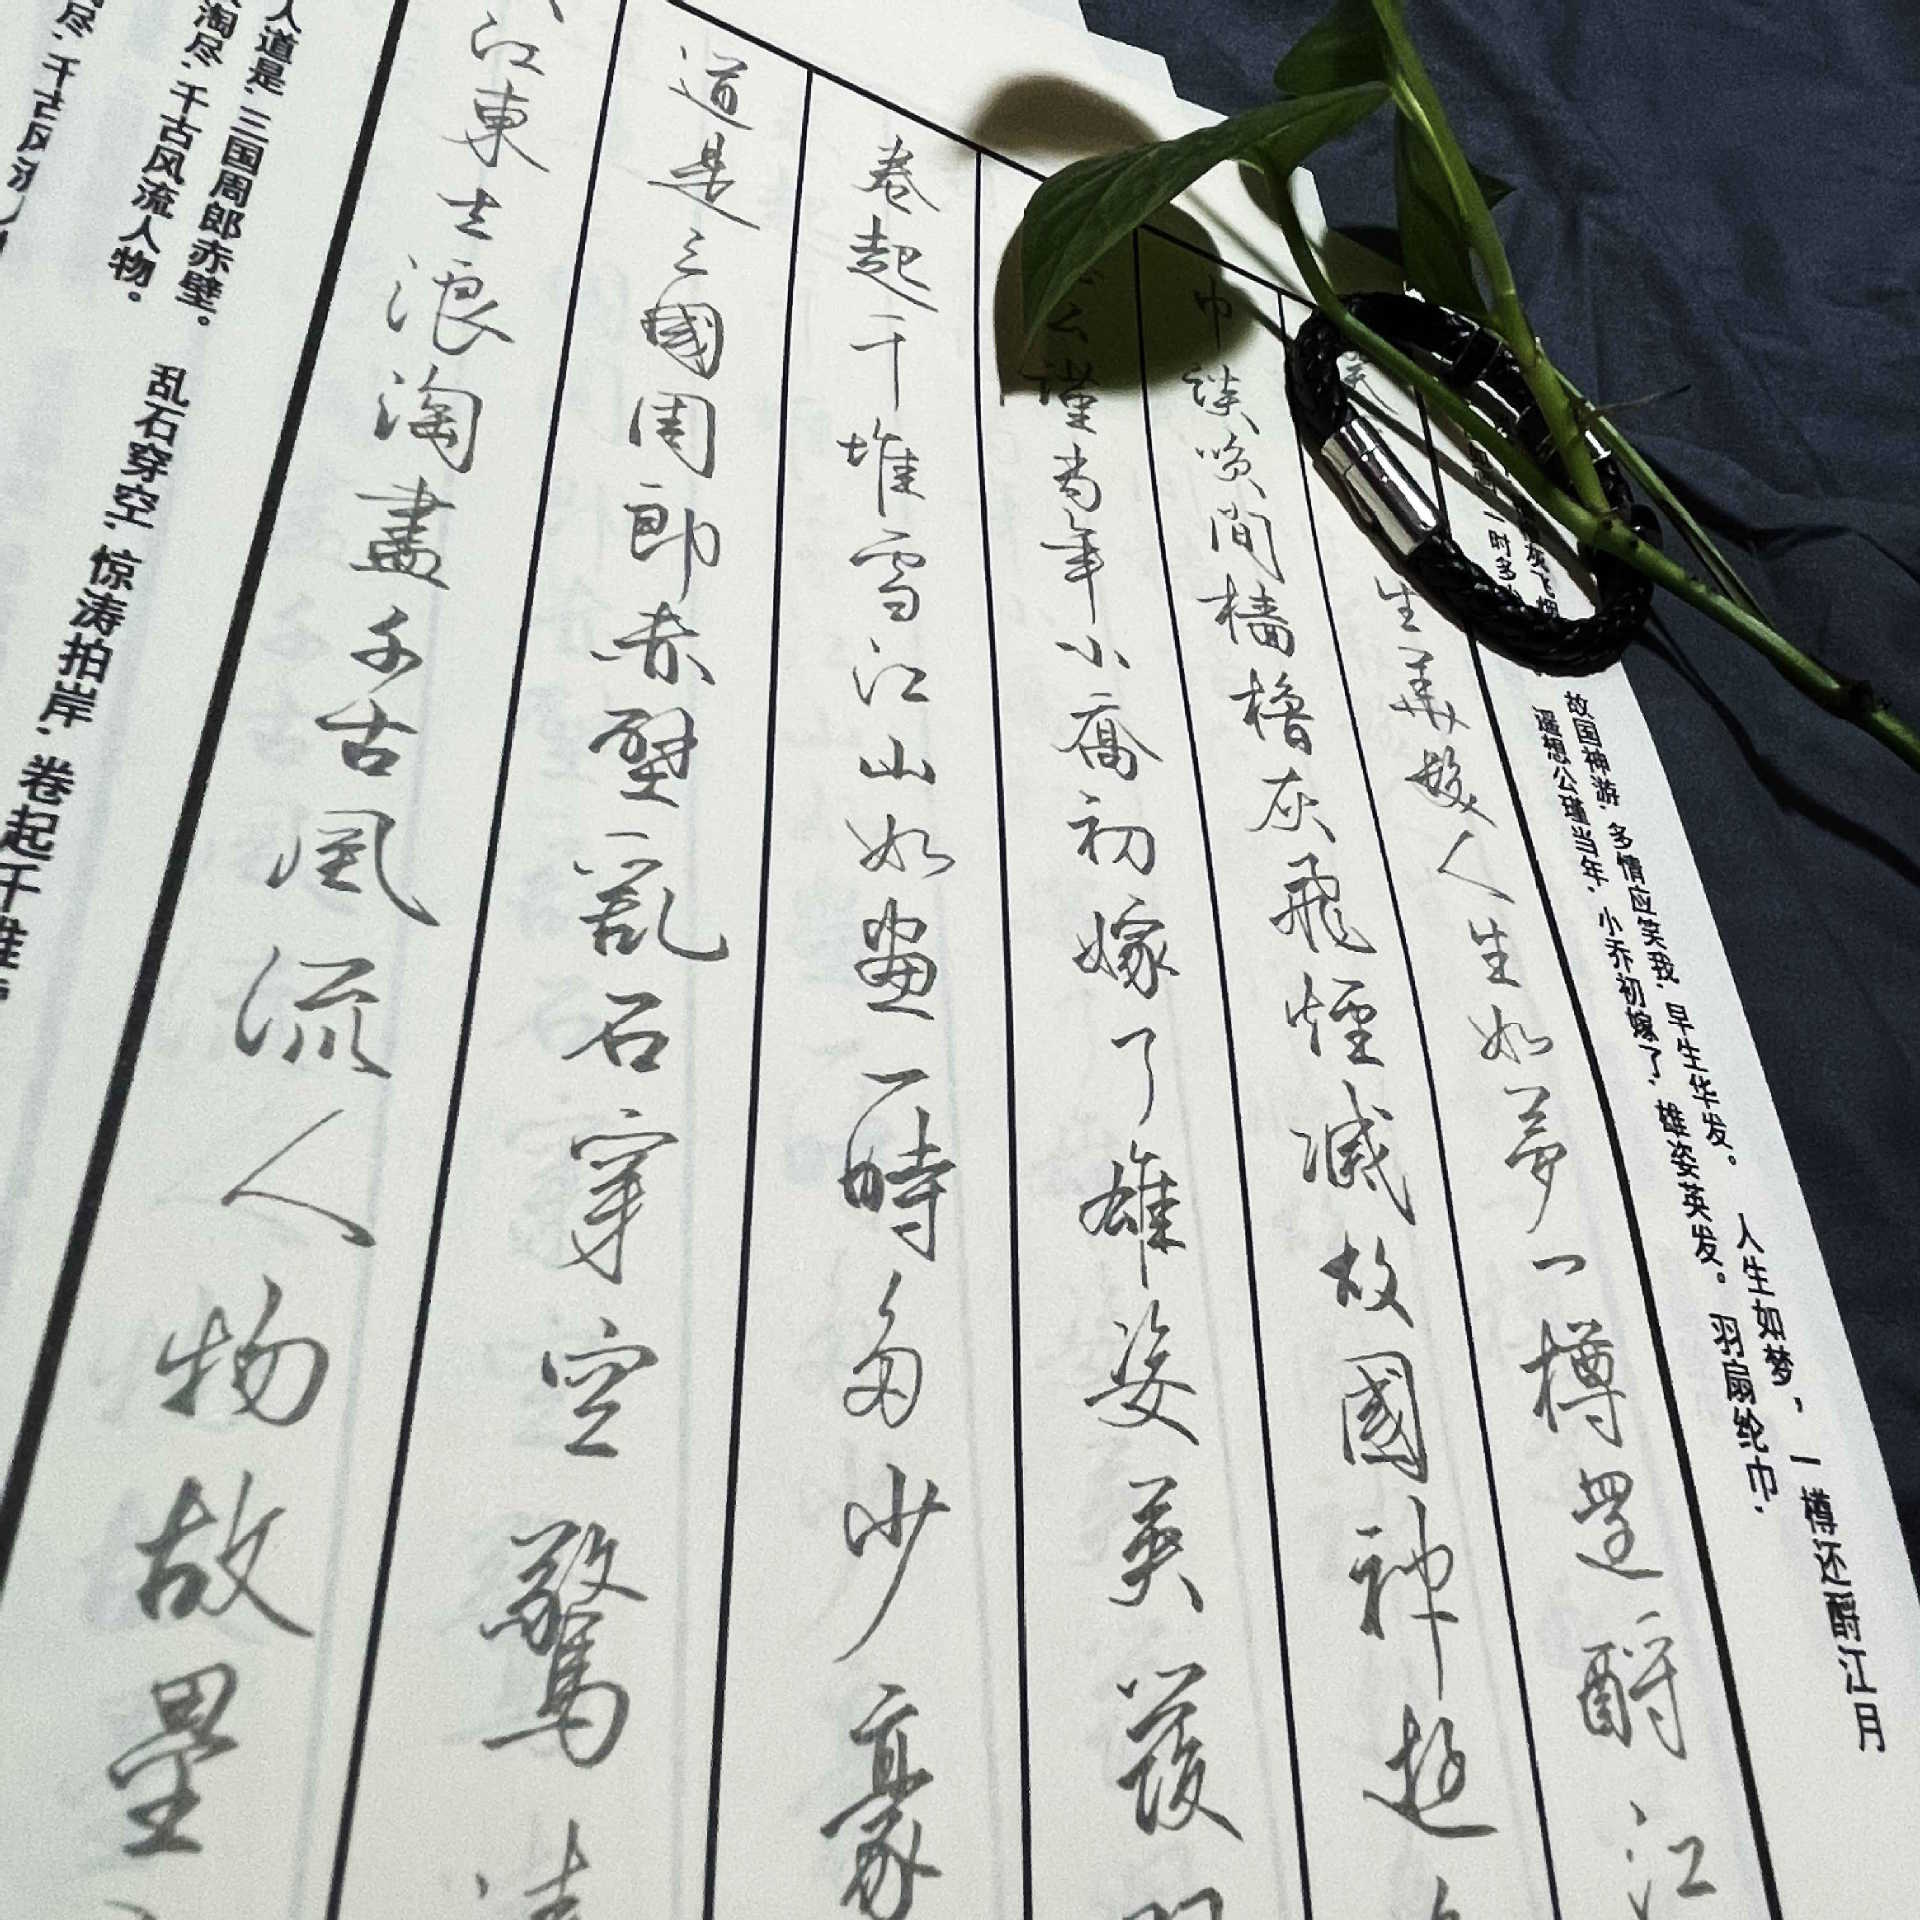 尽,千古风流
淘尽,千古风流人物。
人道是,三国周郎赤壁。
乱石穿空,惊涛拍岸,卷起千堆
江東去浪淘盡千古風流人物故壘
道是三國周郎赤壁亂石穿空驚濤
卷起千堆雪江山如畫一時多少豪
公謹當年小喬初嫁了雄姿英發羽
巾談笑間檣櫓灰飛煙滅故國神遊
生華髮人生如夢一樽還酹江
一时多
灰飞烟
遥想公瑾当年,小乔初嫁了,雄姿英发。羽扇纶巾,
故国神游,多情应笑我,早生华发。人生如梦,一樽还酹江月